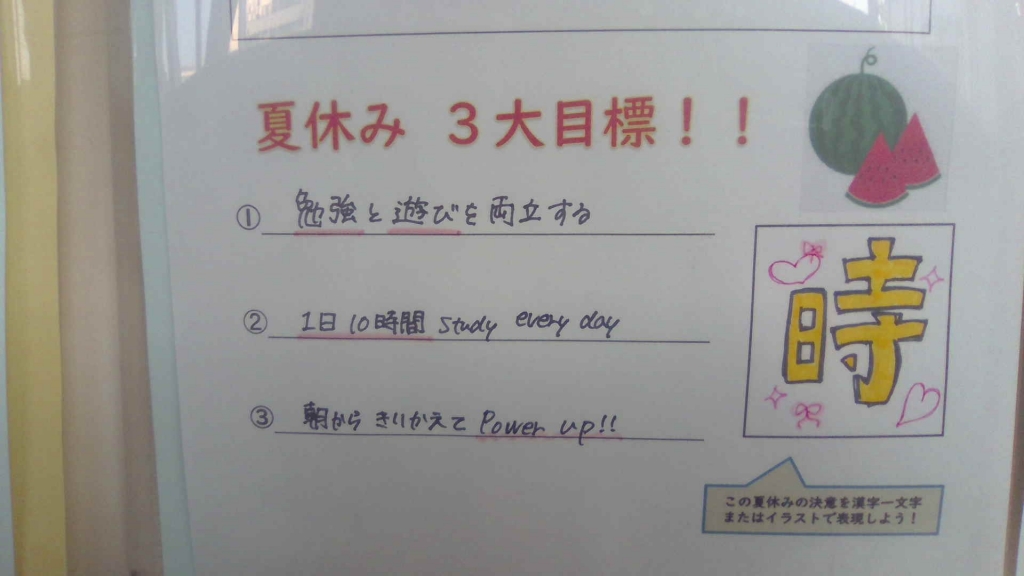 夏休み 3大目標!!
① 勉強と遊びを両立する
② 1日10時間 study every day
③ 朝から きりかえて Power up!!
時
この夏休みの決意を漢字一文字
またはイラストで表現しよう!